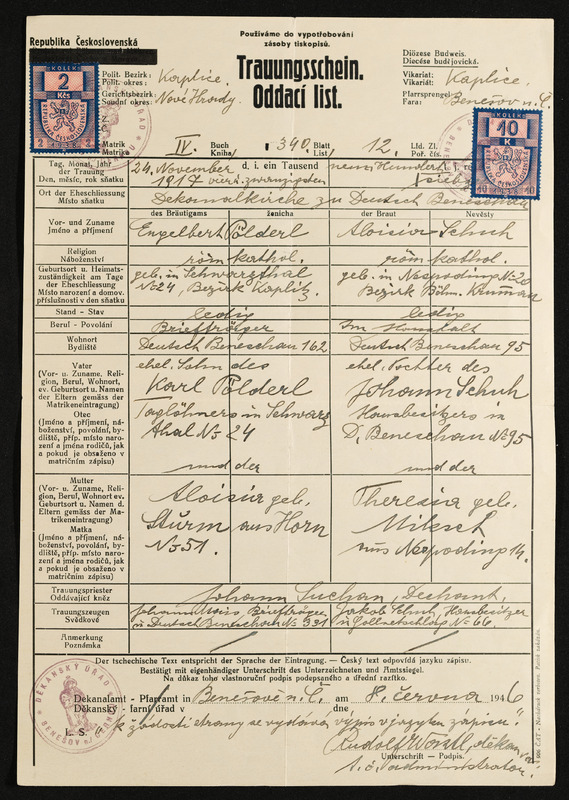 Používáme do vypotřebování
zásoby tiskopisů.
Republika Československá
Trauungsschein.
Oddací list.
Diözese Budweis.
Diecése budějovická.
Polit. Bezirk:
Polit. okres: Kaplice
Gerichtsbezirk:
Soudní okres: Nové Hrady.
Vikariat:
Vikariát: Kaplice.
Pfarrsprengel:
Fara: Benešov n. Č.
KOLEK
2
Kčs
REPUBLIKA ČESKOSLOVENSKÁ
KOLEK
10
K
10 1938 10
Matrik
Matrika IV. Buch
Kniha 340. Blatt
List 12. Lfd. Zl.
Poř. čís.
Tag, Monat, Jahr
der Trauung
Den, měsíc, rok sňatku
24. November d. i. ein Tausend neun Hundert
Ort der Eheschliessung
Místo sňatku
Dekanalkirche zu Deutsch Beneschau
Vor- und Zuname
Jméno a příjmení
des Bräutigams ženicha der Braut Nevěsty
Engelbert Pölderl Aloisia Schuh
Religion
Náboženství
röm. kathol. röm. kathol.
Geburtsort u. Heimats-
zuständigkeit am Tage
der Eheschliessung
Místo narození a domov.
příslušnosti v den sňatku
geb. in Schwarzthal geb. in Nespoding No 20
No 24, Bezirk Kaplitz. Bezirk Böhm. Krumau
Stand - Stav
ledig ledig
Beruf - Povolání
Briefträger Im Haushalt
Wohnort
Bydliště
Deutsch Beneschau 162 Deutsch Beneschau 95
Vater
(Vor- u. Zuname, Reli-
gion, Beruf, Wohnort,
ev. Geburtsort u. Namen
der Eltern gemäss der
Matrikeneintragung)
Otec
(Jméno a příjmení, ná-
boženství, povolání, by-
dliště, příp. místo naro-
zení a jméno rodičů, jak
a pokud je obsaženo v
matričním zápisu)
ehel. Sohn des ehel. Tochter des
Karl Pölderl Johann Schuh
Taglöhners in Schwarz Hausbesitzers in
thal No 24 D. Beneschau No 95
und der und der
Mutter
(Vor- u. Zuname, Reli-
gion, Beruf, Wohnort ev.
Geburtsort u. Namen d.
Eltern gemäss der Ma-
trikeneintragung)
Matka
(Jméno a příjmení, ná-
boženství, povolání, by-
dliště, příp. místo naro-
zení a jméno rodičů, jak
a pokud je obsaženo v
matričním zápisu)
Aloisia geb. Theresia geb.
Sturm aus Horn Miksch
No 51. aus Nespoding 14.
Trauungspriester
Oddávající kněz
Johann Suchan, Dechant.
Trauungszeugen
Svědkové
Johann Weiss, Briefträger Jakob Schuh, Hausbesitzer
in Deutsch Beneschau No 331 in Gollnetschlag No 66.
Anmerkung
Poznámka
Der tschechische Text entspricht der Sprache der Eintragung. — Český text odpovídá jazyku zápisu.
Bestätigt mit eigenhändiger Unterschrift des Unterzeichneten und Amtssiegel.
Na důkaz toho vlastnoruční podpis podepsaného a úřední razítko.
DĚKANSKÝ ÚŘAD
BENEŠOV n. ČERNOU
Dekanalamt - Pfarramt in
Děkanský - farní úřad v Benešově n. Č. am
dne 8. června 1946
L. S. „K žádosti strany se vydává výpis v jazyku zápisu."
Rudolf Wöstl, děkan
Unterschrift - Podpis.
administrator.